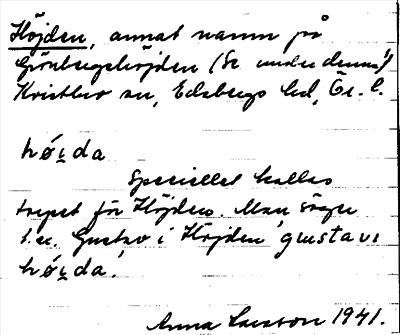 Höjden, annat namn på
Grönbergshöjden (Se under denna!)
Kvistbro sn, Edsbergs hd, Ör. l.
hø̜i̯da
Speciellt kallas
torpet för Höjden. Man säger
t. ex. Gustav i Höjden, gustav i
hø̜i̯da!
Anna Larsson 1941.